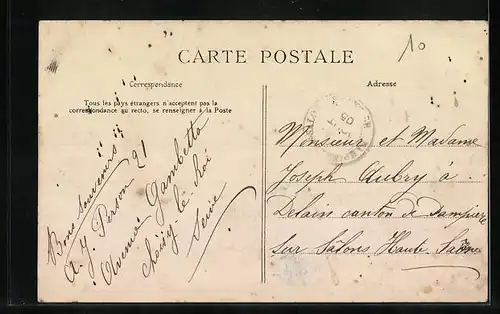 CARTE POSTALE
10
Correspondance
Adresse
Tous les pays étrangers n'acceptent pas la
correspondance au recto, se renseigner à la Poste
Bons souvenirs
A. J. Person 21
Avenue Gambetta
Choisy le Roi
Seine
Monsieur et Madame
Joseph Aubry à
Delain canton de Dampierre
sur Salons Haute Saône